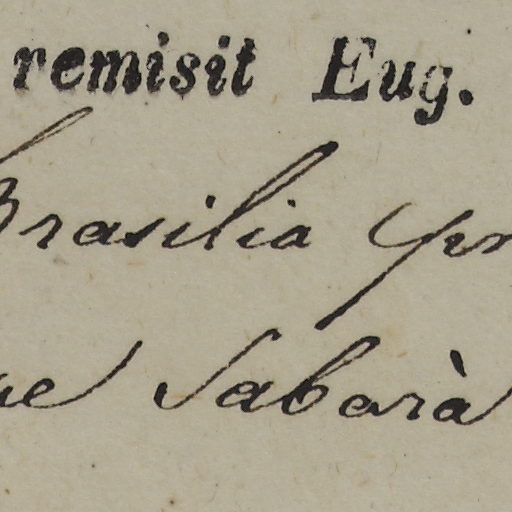 remisit Eug.
Brasilia
Sabarà